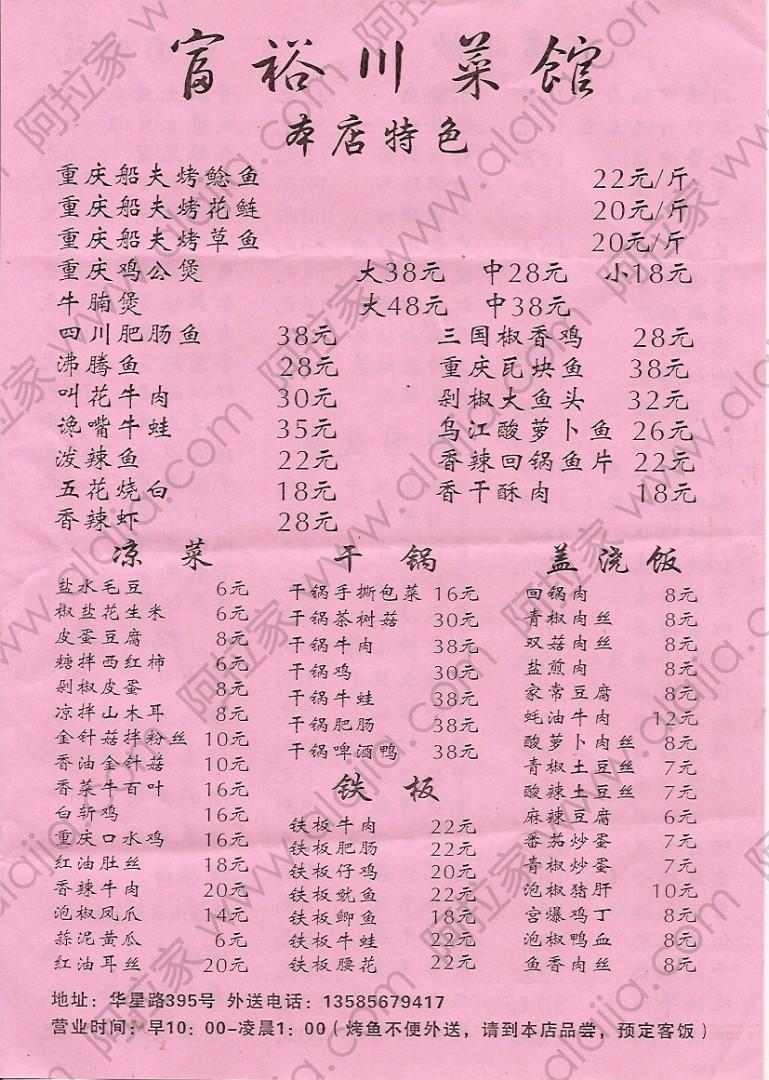 富裕川菜馆
本店特色
重庆船夫烤鲶鱼 22元/斤
重庆船夫烤花鲢 20元/斤
重庆船夫烤草鱼 20元/斤
重庆鸡公煲 大38元 中28元 小18元
牛腩煲 大48元 中38元
四川肥肠鱼 38元 三国椒香鸡 28元
沸腾鱼 28元 重庆瓦块鱼 38元
叫花牛肉 30元 剁椒大鱼头 32元
馋嘴牛蛙 35元 乌江酸萝卜鱼 26元
泼辣鱼 22元 香辣回锅鱼片 22元
五花烧白 18元 香干酥肉 18元
香辣虾 28元
凉菜
盐水毛豆 6元
椒盐花生米 6元
皮蛋豆腐 8元
糖拌西红柿 6元
剁椒皮蛋 8元
凉拌山木耳 8元
金针菇拌粉丝 10元
香油金针菇 10元
香菜牛百叶 16元
白斩鸡 16元
重庆口水鸡 16元
红油肚丝 18元
香辣牛肉 20元
泡椒凤爪 14元
蒜泥黄瓜 6元
红油耳丝 20元
干锅
干锅手撕包菜 16元
干锅茶树菇 30元
干锅牛肉 38元
干锅鸡 30元
干锅牛蛙 38元
干锅肥肠 38元
干锅啤酒鸭 38元
铁板
铁板牛肉 22元
铁板肥肠 22元
铁板仔鸡 20元
铁板鱿鱼 22元
铁板鲫鱼 18元
铁板牛蛙 22元
铁板腰花 22元
盖浇饭
回锅肉 8元
青椒肉丝 8元
双菇肉丝 8元
盐煎肉 8元
家常豆腐 8元
蚝油牛肉 12元
酸萝卜肉丝 8元
青椒土豆丝 7元
酸辣土豆丝 7元
麻辣豆腐 6元
番茄炒蛋 7元
青椒炒蛋 7元
泡椒猪肝 10元
宫爆鸡丁 8元
泡椒鸭血 8元
鱼香肉丝 8元
地址：华星路395号 外送电话：13585679417
营业时间：早10：00-凌晨1：00（烤鱼不便外送，请到本店品尝，预定客饭）
阿拉家 www.alajia.com